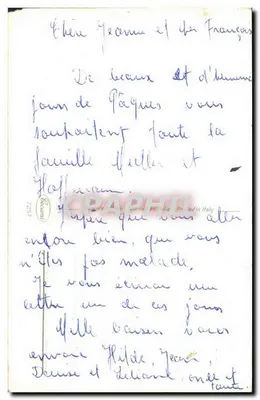 Chère Jeanne et cher François
De beaux et d'heureux
jours de Pâques vous
souhaitent toute la
famille Muller et
Hoffmann.
J'espère que vous allez
encore bien, que vous
n'êtes pas malade.
Je vous écrirai une
lettre un de ces jours
Mille baisers vous
envoie Hilde, Jean,
Denise et Liliane, oncle et
tante.